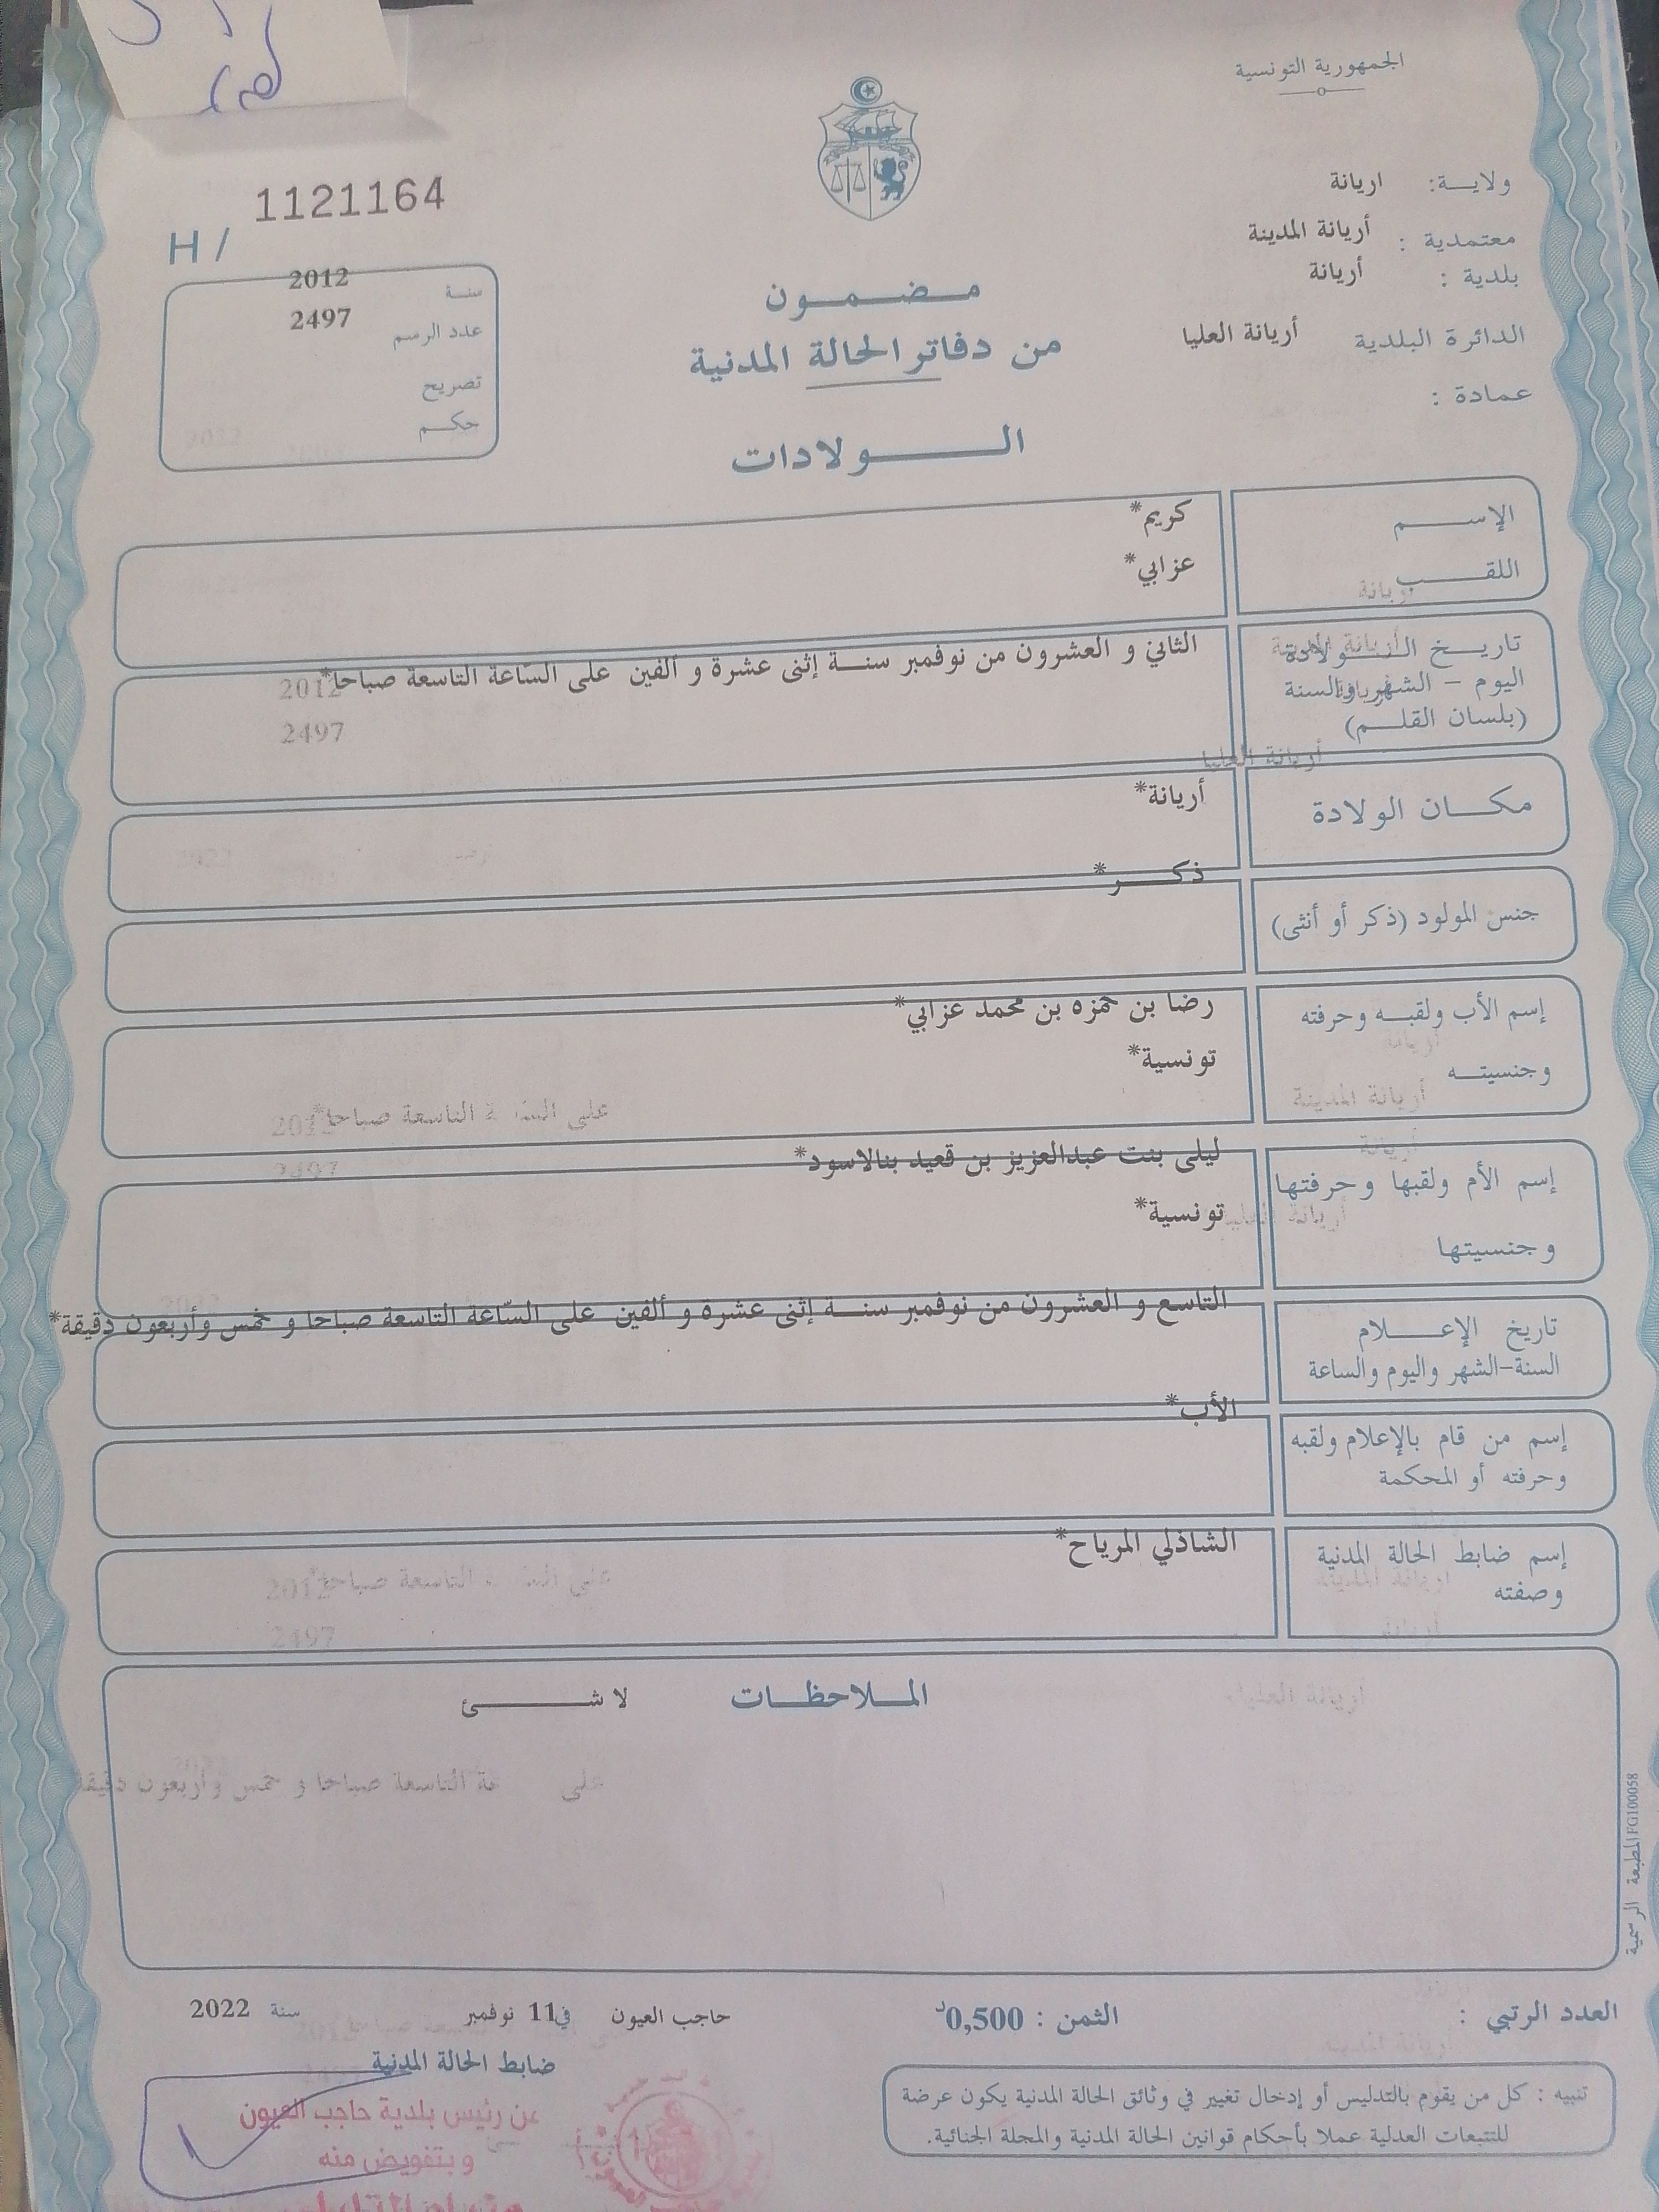 الجمهورية التونسية
ولايـــة: اريانة
معتمدية : أريانة المدينة
بلدية : أريانة
الدائرة البلدية أريانة العليا
عمادة :
1121164
H/
سنة 2012
عدد الرسم 2497
تصريح
حكـــم
مـــضـــمـــون
من دفاتر الحالة المدنية
الـــــولادات
الإســـــم كريم*
اللقـــــب عزابي*
تاريـــخ الـــولادة الثاني و العشرون من نوفمبر سنـــة إثنى عشرة و ألفين على السّاعة التاسعة صباحا*
اليوم - الشهر والسنة
(بلسان القلـــم)
مكـــان الولادة أريانة*
جنس المولود (ذكر أو أنثى) ذكـــر*
إسم الأب ولقبـــه وحرفته رضا بن حمزه بن محمد عزابي*
وجنسيتـــه تونسية*
إسم الأم ولقبها وحرفتها ليلى بنت عبدالعزيز بن قعيد بنالاسود*
وجنسيتها تونسية*
تاريخ الإعـــــلام التاسع و العشرون من نوفمبر سنـــة إثنى عشرة و ألفين على السّاعة التاسعة صباحا و خمس وأربعون دقيقة*
السنة-الشهر واليوم والساعة
إسم من قام بالإعلام ولقبه الأب*
وحرفته أو المحكمة
إسم ضابط الحالة المدنية الشاذلي المرياح*
وصفته
المـــلاحظـــات لا شـــــئ
المطبعة الرسمية FG100058
العدد الرتبي :
الثمن : 0,500د
حاجب العيون في 11 نوفمبر سنة 2022
ضابط الحالة المدنية
عن رئيس بلدية حاجب العيون
وبتفويض منه
تنبيه : كل من يقوم بالتدليس أو إدخال تغيير في وثائق الحالة المدنية يكون عرضة
للتتبعات العدلية عملا بأحكام قوانين الحالة المدنية والمجلة الجنائية.